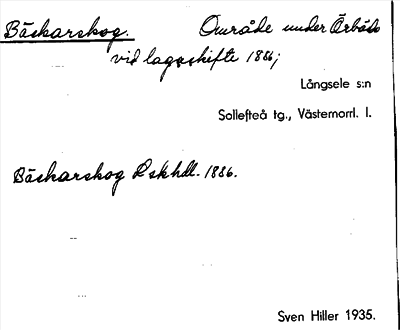 Bäckarskog. Område under Örbäck
vid lagaskifte 1886;
Långsele s:n
Sollefteå tg., Västernorrl. l.
Bäckarskog Lskhdl. 1886.
Sven Hiller 1935.